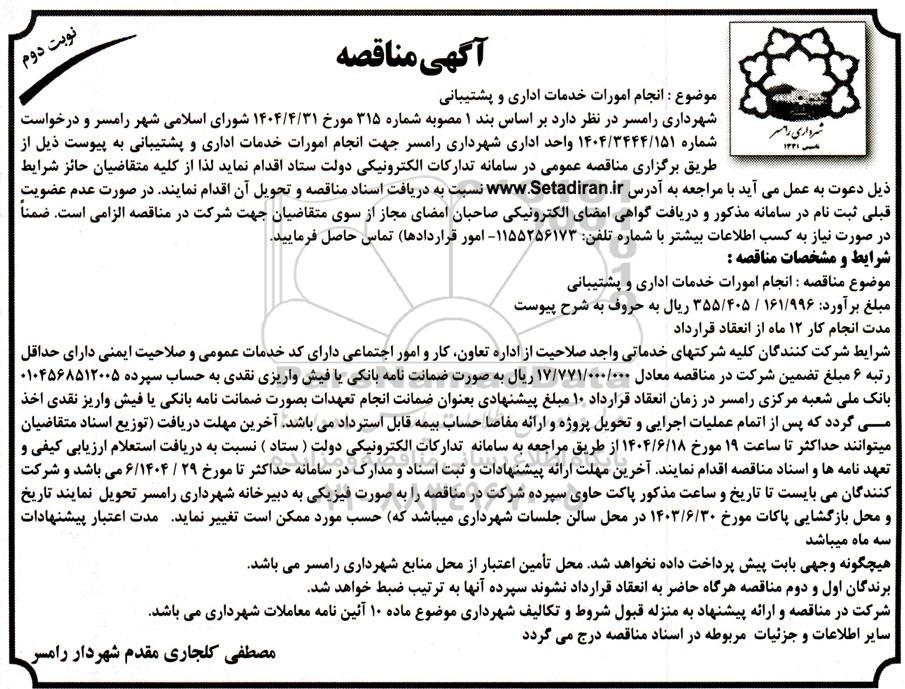 نوبت دوم
آگهی مناقصه
شهرداری رامسر
تاسیس ۱۳۳۱
موضوع : انجام امورات خدمات اداری و پشتیبانی
شهرداری رامسر در نظر دارد بر اساس بند ۱ مصوبه شماره ۳۱۵ مورخ ۱۴۰۴/۴/۳۱ شورای اسلامی شهر رامسر و درخواست
شماره ۱۴۰۴/۳۴۴۴/۱۵۱ واحد اداری شهرداری رامسر جهت انجام امورات خدمات اداری و پشتیبانی به پیوست ذیل از
طریق برگزاری مناقصه عمومی در سامانه تدارکات الکترونیکی دولت ستاد اقدام نماید لذا از کلیه متقاضیان حائز شرایط
ذیل دعوت به عمل می آید با مراجعه به آدرس www.Setadiran.ir نسبت به دریافت اسناد مناقصه و تحویل آن اقدام نمایند. در صورت عدم عضویت
قبلی ثبت نام در سامانه مذکور و دریافت گواهی امضای الکترونیکی صاحبان امضای مجاز از سوی متقاضیان جهت شرکت در مناقصه الزامی است. ضمناً
در صورت نیاز به کسب اطلاعات بیشتر با شماره تلفن: ۱۱۵۵۲۵۶۱۷۳- امور قراردادها) تماس حاصل فرمایید.
شرایط و مشخصات مناقصه :
موضوع مناقصه : انجام امورات خدمات اداری و پشتیبانی
مبلغ برآورد: ۱۶۱/۹۹۶ / ۳۵۵/۴۰۵ ریال به حروف به شرح پیوست
مدت انجام کار ۱۲ ماه از انعقاد قرارداد
شرایط شرکت کنندگان کلیه شرکتهای خدماتی واجد صلاحیت از اداره تعاون، کار و امور اجتماعی دارای کد خدمات عمومی و صلاحیت ایمنی دارای حداقل
رتبه ۶ مبلغ تضمین شرکت در مناقصه معادل ۱۷/۷۷۱/۰۰۰/۰۰۰ ریال به صورت ضمانت نامه بانکی یا فیش واریزی نقدی به حساب سپرده ۰۱۰۴۵۶۸۵۱۲۰۰۵
بانک ملی شعبه مرکزی رامسر در زمان انعقاد قرارداد ۱۰ مبلغ پیشنهادی بعنوان ضمانت انجام تعهدات بصورت ضمانت نامه بانکی یا فیش واریز نقدی اخذ
مـــی گردد که پس از اتمام عملیات اجرایی و تحویل پروژه و ارائه مفاصا حساب بیمه قابل استرداد می باشد. آخرین مهلت دریافت (توزیع اسناد متقاضیان
میتوانند حداکثر تا ساعت ۱۹ مورخ ۱۴۰۴/۶/۱۸ از طریق مراجعه به سامانه تدارکات الکترونیکی دولت ( ستاد ) نسبت به دریافت استعلام ارزیابی کیفی و
تعهد نامه ها و اسناد مناقصه اقدام نمایند. آخرین مهلت ارائه پیشنهادات و ثبت اسناد و مدارک در سامانه حداکثر تا مورخ ۲۹ / ۶/۱۴۰۴ می باشد و شرکت
کنندگان می بایست تا تاریخ و ساعت مذکور پاکت حاوی سپرده شرکت در مناقصه را به صورت فیزیکی به دبیرخانه شهرداری رامسر تحویل نمایند تاریخ
و محل بازگشایی پاکات مورخ ۱۴۰۳/۶/۳۰ در محل سالن جلسات شهرداری میباشد که) حسب مورد ممکن است تغییر نماید. مدت اعتبار پیشنهادات
سه ماه میباشد
هیچگونه وجهی بابت پیش پرداخت داده نخواهد شد. محل تأمین اعتبار از محل منابع شهرداری رامسر می باشد.
برندگان اول و دوم مناقصه هرگاه حاضر به انعقاد قرارداد نشوند سپرده آنها به ترتیب ضبط خواهد شد.
شرکت در مناقصه و ارائه پیشنهاد به منزله قبول شروط و تکالیف شهرداری موضوع ماده ۱۰ آئین نامه معاملات شهرداری می باشد.
سایر اطلاعات و جزئیات مربوطه در اسناد مناقصه درج می گردد
مصطفی کلجاری مقدم شهردار رامسر
ParsNamadData
پایگاه اطلاع رسانی مناقصه و مزایده
۰۲۱-۸۸۳۴۹۶۷۰-۵